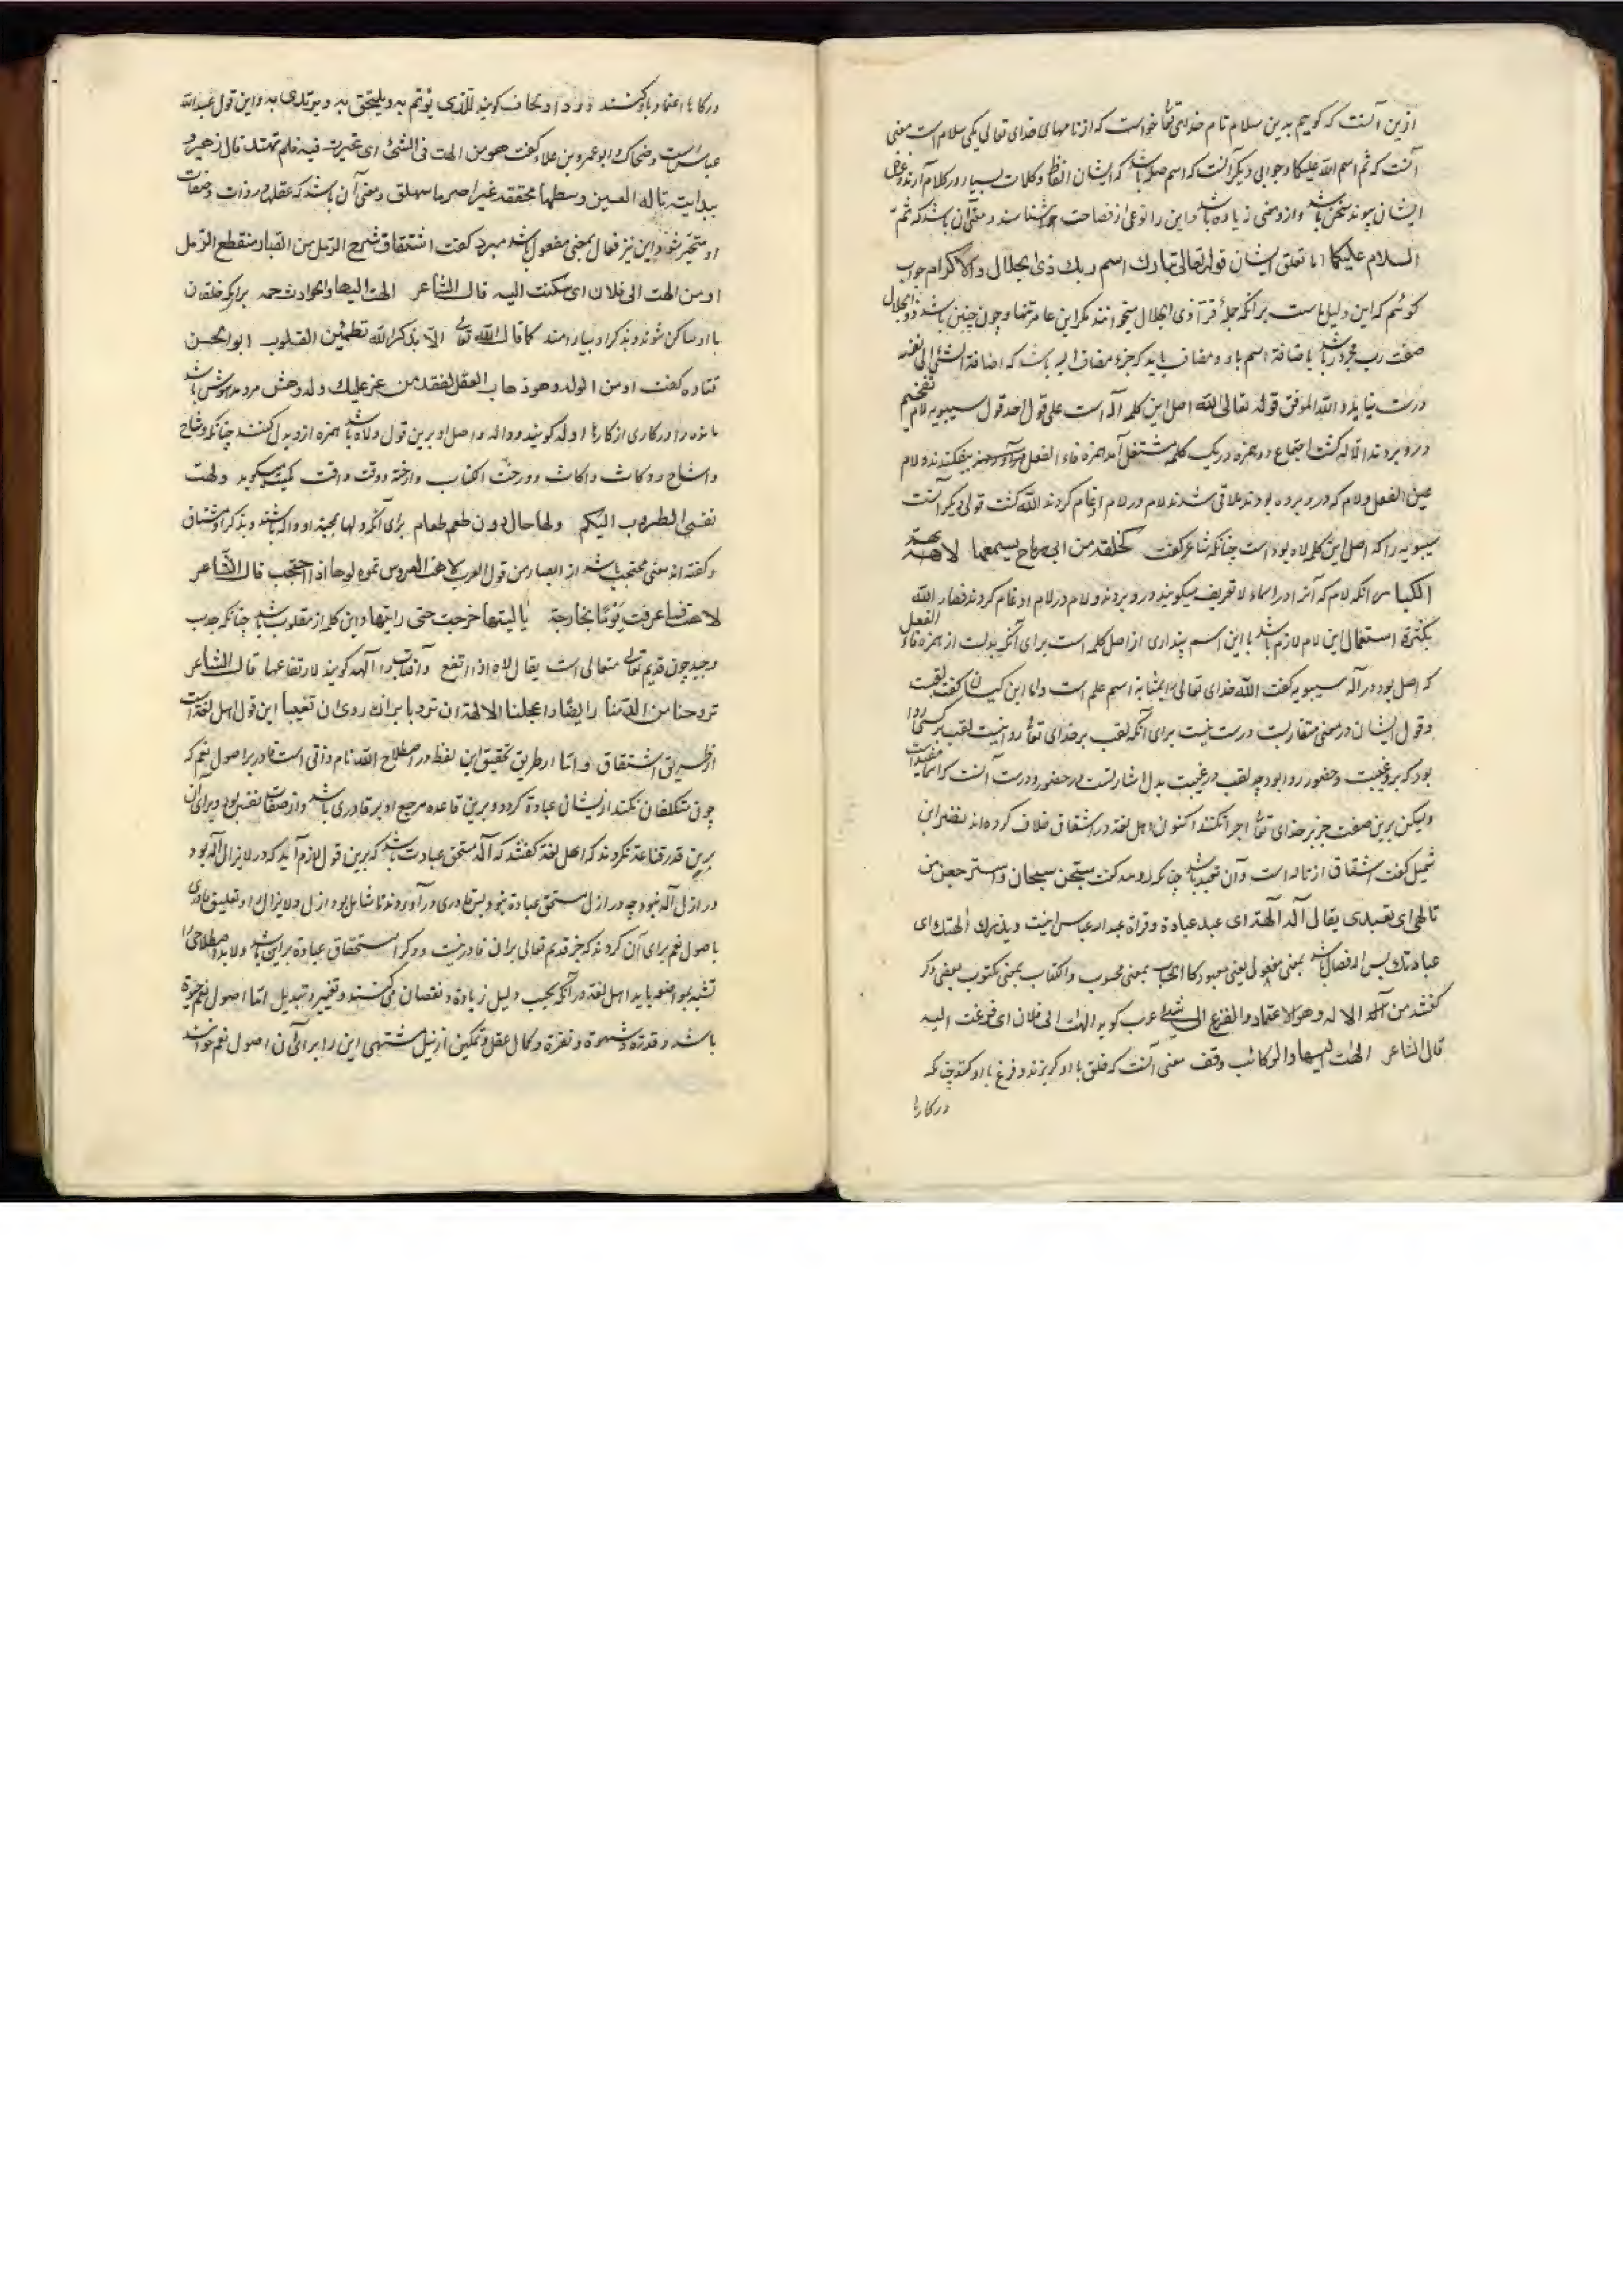 ازین آنست که گوییم بدین سلام نام خدای تعالی خواست که از نامهای خدای تعالی یکی سلام است معنی
آنست که ثم اسم الله علیکما و جوابی دیگر آنست که اسم صله باشد که ایشان الفاظ و کلمات بسیار در کلام آرند و غرض
ایشان پیوند سخن باشد و ازو معنی زیاده باشد و این را نوعی از فصاحت شناسند و معنی آن باشد که ثم
السلام علیکما اما تعلق ایشان قوله تعالی تبارك اسم ربك ذی الجلال والاکرام جواب
گوئیم که این دلیل ماست برانکه جمله قرآ ذی الجلال میخوانند مگر ابن عامر تنها و چون چنین باشد ذی الجلال
صفت رب مجرور باشد باضافة اسم باو و مضاف باید که جزء مضاف الیه باشد که اضافة الشئ الی نفسه
درست نیاید و الله الموفق قوله تعالی الله اصل این کلمه اله است علی قول احد قول سیبویه لام تفخیم
درو بردند الاله گشت اجتماع دو همزه در یک کلمه مستثقل آمد همزه فاء الفعل بیفکندند و لام
عین الفعل و لام که درو برده بودند ملاقی شدند لام در لام ادغام کردند الله گشت قولی دیگر آنست
سیبویه را که اصل این کلمه لاه بوده است چنانکه شاعر گفت کحلقة من ابی ریاح یسمعها لاهه
الکبار انکه لام که آنرا در اسماء لام تعریف میگویند درو بردند و لام در لام ادغام کردند فصار الله
بکثرة استعمال این لام لازم باشد با این اسم پنداری از اصل کلمه است برای آنکه بدلست از همزه فاء الفعل
که اصل بود در اله سیبویه گفت الله خدای تعالی را بمثابة اسم علم است و اما ابن کیسان گفت لقبست
و قول ایشان در معنی متقاربست درست نیست برای آنکه لقب بر خدای تعالی روا نیست لقب بر کسی روا
بود که برو غیبت و حضور روا بود چه لقب در غیبت بدل اشارتست در حضور و درست آنست که اسمائی مفیداست
ولیکن برین صفت جز بر خدای تعالی اجرا نکنند اکنون اهل لغة در اشتقاق خلاف کرده‌اند نضر بن
شمیل گفت اشتقاق از تاله است و آن تعبد باشد چنانکه گفت سبحن سبحان واسترجعن من
تالهی ای تعبدی یقال اله الهة ای عبد عبادة و قراة عبدالله عباس اینست ویذرك والهتك ای
عبادتك پس اله فعال باشد بمعنی مفعول یعنی معبود کالحساب بمعنی محسوب و الکتاب بمعنی مکتوب بعضی دگر
گفتند من اله الا له وهو الاعتماد والفزع الی شئ عرب گوید الهت الی فلان ای فزعت الیه
قال الشاعر الهت الیها والرکائب وقف معنی آنست که خلق با او گریزند و فزع با او کنند چنانکه
در کارها
در کارها اعتماد باو کنند و ردا و لحاف گویند للذی یؤتم به و یلتحف به و یرتدی به و این قول عبدالله
عباس است و ضحاك و ابو عمرو بن علاء گفت هو من الهت فی الشئ ای تحیرت فیه فلم تهتد قال زهیر
ببداء تیه تاله العین وسطها محققة غبراء صرماء سملق و معنی آن باشد که عقلها در ذات و صفات
او متحیر شود و این نیز فعال بمعنی مفعول باشد مبرد گفت اشتقاق
او من الهت الی فلان ای سکنت الیه قال الشاعر الهت الیها والحوادث جمة برانکه خلقان
با او ساکن شوند و بذکر او بیارامند کما قال الله تعالی الا بذکر الله تطمئن القلوب ابو الحسن
قتاده گفت او من الوله وهو ذهاب العقل لفقد من یعز علیك وله وهش مرد مدهوش باشد
مانده را در کاری از کارها اوله گویند و واله و اصل او برین قول ولاه باشد همزه ازو بدل کنند چنانکه وشاح
و اشاح و وکاف و اکاف و ورخت الکتاب و ارخته و وقت و اقت کمیت میگوید ولهت
نفسی الطروب الیکم ولها حال دون طعم طعام برای آنکه دلها بمحبت او واله باشند و بذکر او مشتاق
و گفته‌اند بمعنی محتجب باشد از ابصار من قول العرب لاهت العروس تلوه لوها اذا احتجب قال الشاعر
لاهت فما عرفت یوما بخارجة یا لیتها خرجت حتی رایتها و این کلمه از مقلوب باشد چنانکه جذب
و جبذ چون قدیم تعالی متعالی است یقال لاه اذا ارتفع و آفتاب را الهه گویند لارتفاعها قال الشاعر
تروحنا من الدهنا واعجلنا الالاهة ان تروبا این قول اهل لغة است
از طریق اشتقاق و اما از طریق تحقیق این لفظ در اصطلاح الله نام ذاتی است قادر بر اصول نعم که
چون متکلفان نکنند از ایشان عبادة کردد و برین قاعده مرجع او بر قادری باشد و از صفات نفس بود و برای آن
برین قدر قناعة نکردند که اهل لغة گفتند که اله مستحق عبادت باشد که برین قول لازم آید که در لا یزال اله بود
در ازل اله نبود چه در ازل مستحق عبادة نبود پس قادری در آوردند تا شامل بود ازل و لا یزال او تعلیق قادری
با صول نعم برای آن کردند که جز قدیم تعالی بران قادر نیست و دگر استحقاق عبادة برین باشد و لا بد اصطلاحی را
تشبه بمواضعه باید اهل لغة در آنکه بحسب دلیل زیادة و نقصان می‌کنند و تغییر و تبدیل اما اصول نعم حیوة
باشد و قدرة و شهوة و نفرة و کمال عقل و تمکین از نیل مشتهی این را برای آن اصول نعم خوانند